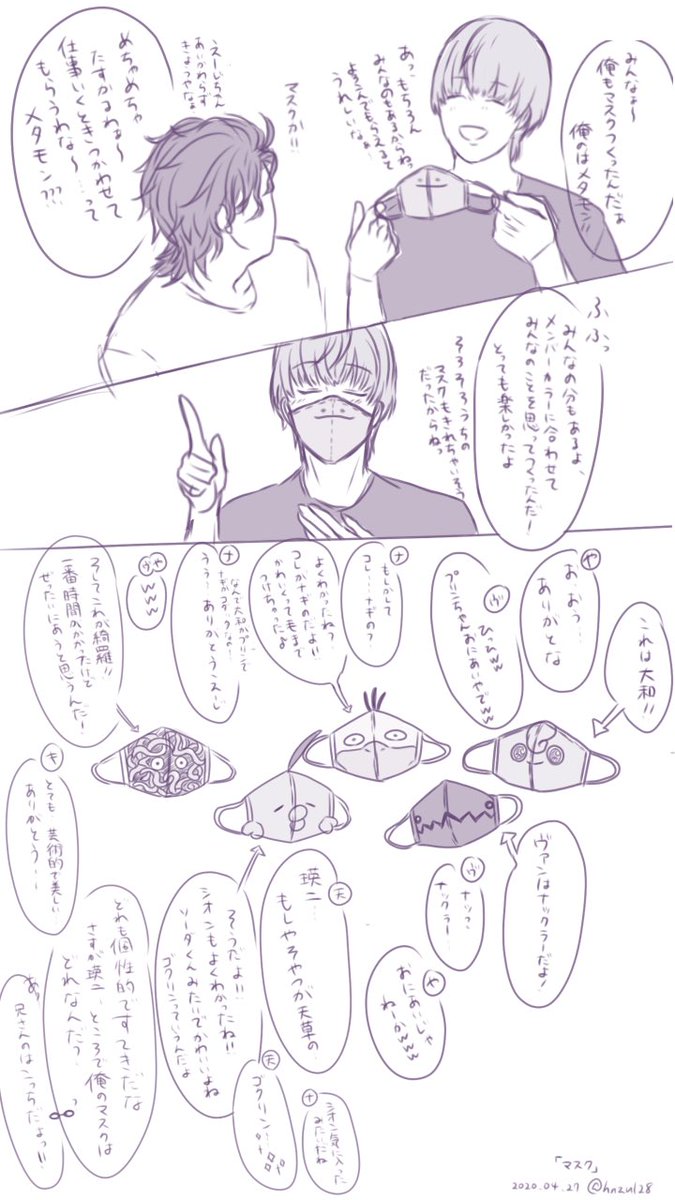 みんなぁ〜
俺もマスクつくったんだぁ
俺のはメタモン!!
あっ、もちろん
みんなのもあるからねっ
よろこんでもらえると
うれしいなぁ
マスクか!!
えーじちゃん
あいかわらず
きようやなぁ
めちゃめちゃ
たすかるわぁ〜
仕事いくときつかわせて
もらうわな〜…って
メタモン???
ふふっ
みんなの分もあるよ、
メンバーカラーに合わせて
みんなのことを思ってつくったんだ!
とっても楽しかったよ
そろそろうちの
マスクもきれちゃいそう
だったからねっ
これは大和!!
や
おおう…
ありがとな
ヴ
ひっひww
プリンちゃん
おにあいやでww
ナ
もしかして
コレ…ナギの?
よくわかったね?
コレがナギのだよ!!
かわいくって毛まで
つけちゃったよ
ナ
なんで大和がプリンで
ナギがコダックなの…
うぅ…ありがとうえーじ
ヴや
www
そしてこれが綺羅!!
一番時間のかかったいて
ぜったいにあうと思うんだ!
キ
とても、芸術的で美しい
ありがとう…
ヴァンはナックラーだよ!
ヴ
ナッ…
ナックラー…
や
おにあいじゃ
ねーかwww
天
瑛二…
もしやそやつが天草の…
そうだよ!!
シオンもよくわかったね!!
ソーダくんみたいでかわいいよね
ゴクリンっていうんだよ
天
ゴクリン…!!
ナ
シオン気に入った
みたいだね
どれも個性的ですてきだな
さすが瑛二…ところで俺のマスクは
どれなんだっ?
あ、
兄さんのはこっちだよっ!!
「マスク」
2020.04.27 @hnzul28